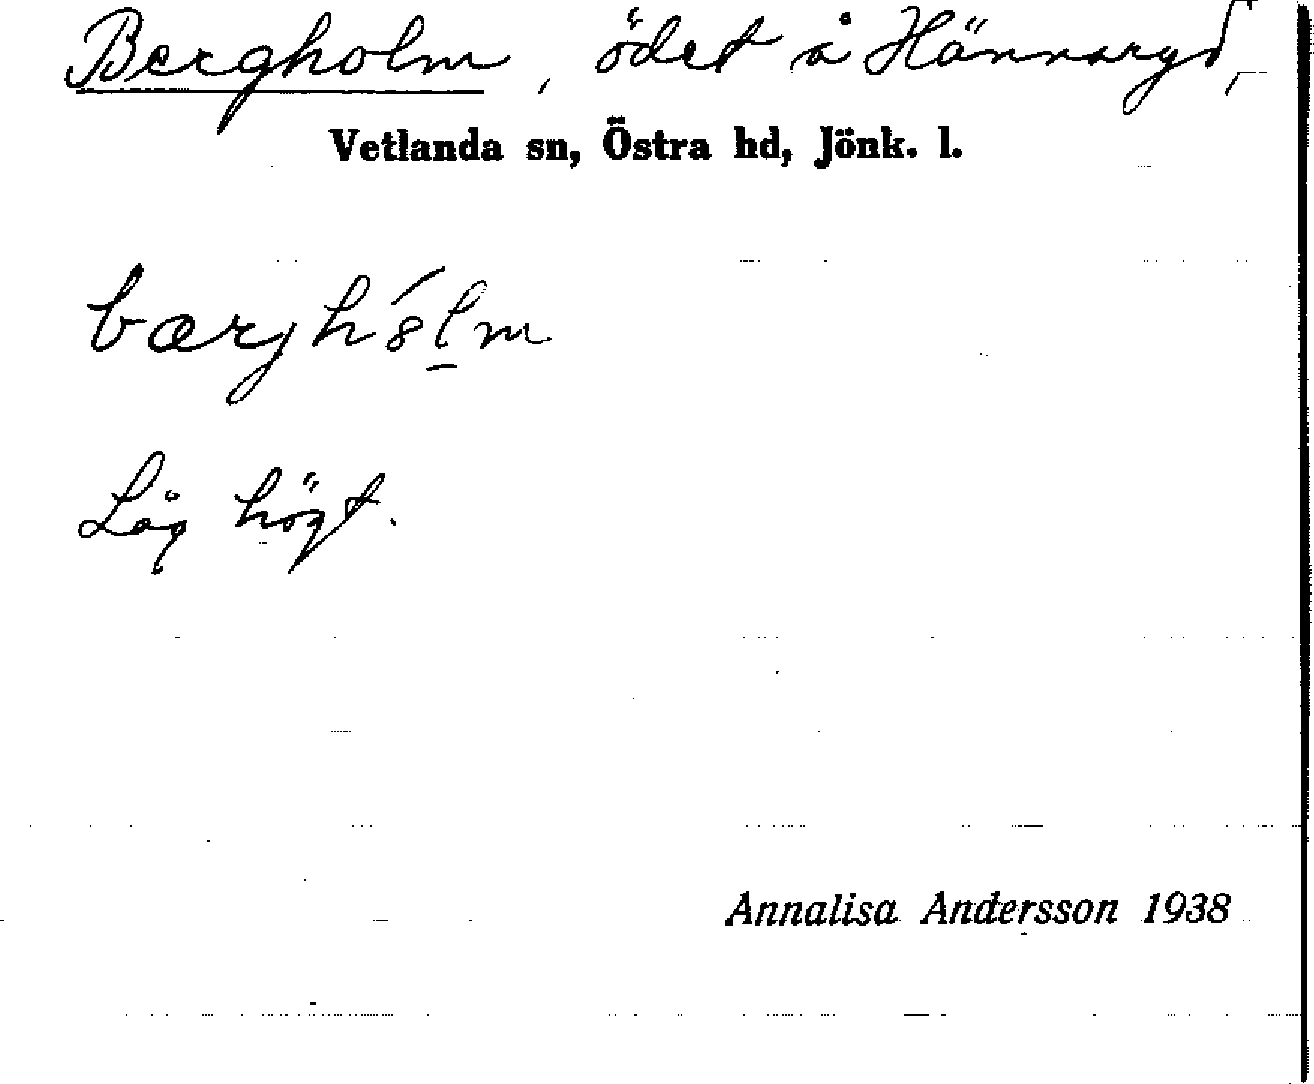 Bergholm, ödet å Hännaryd,
Vetlanda sn, Östra hd, Jönk. l.
Låg högt.
Annalisa Andersson 1938